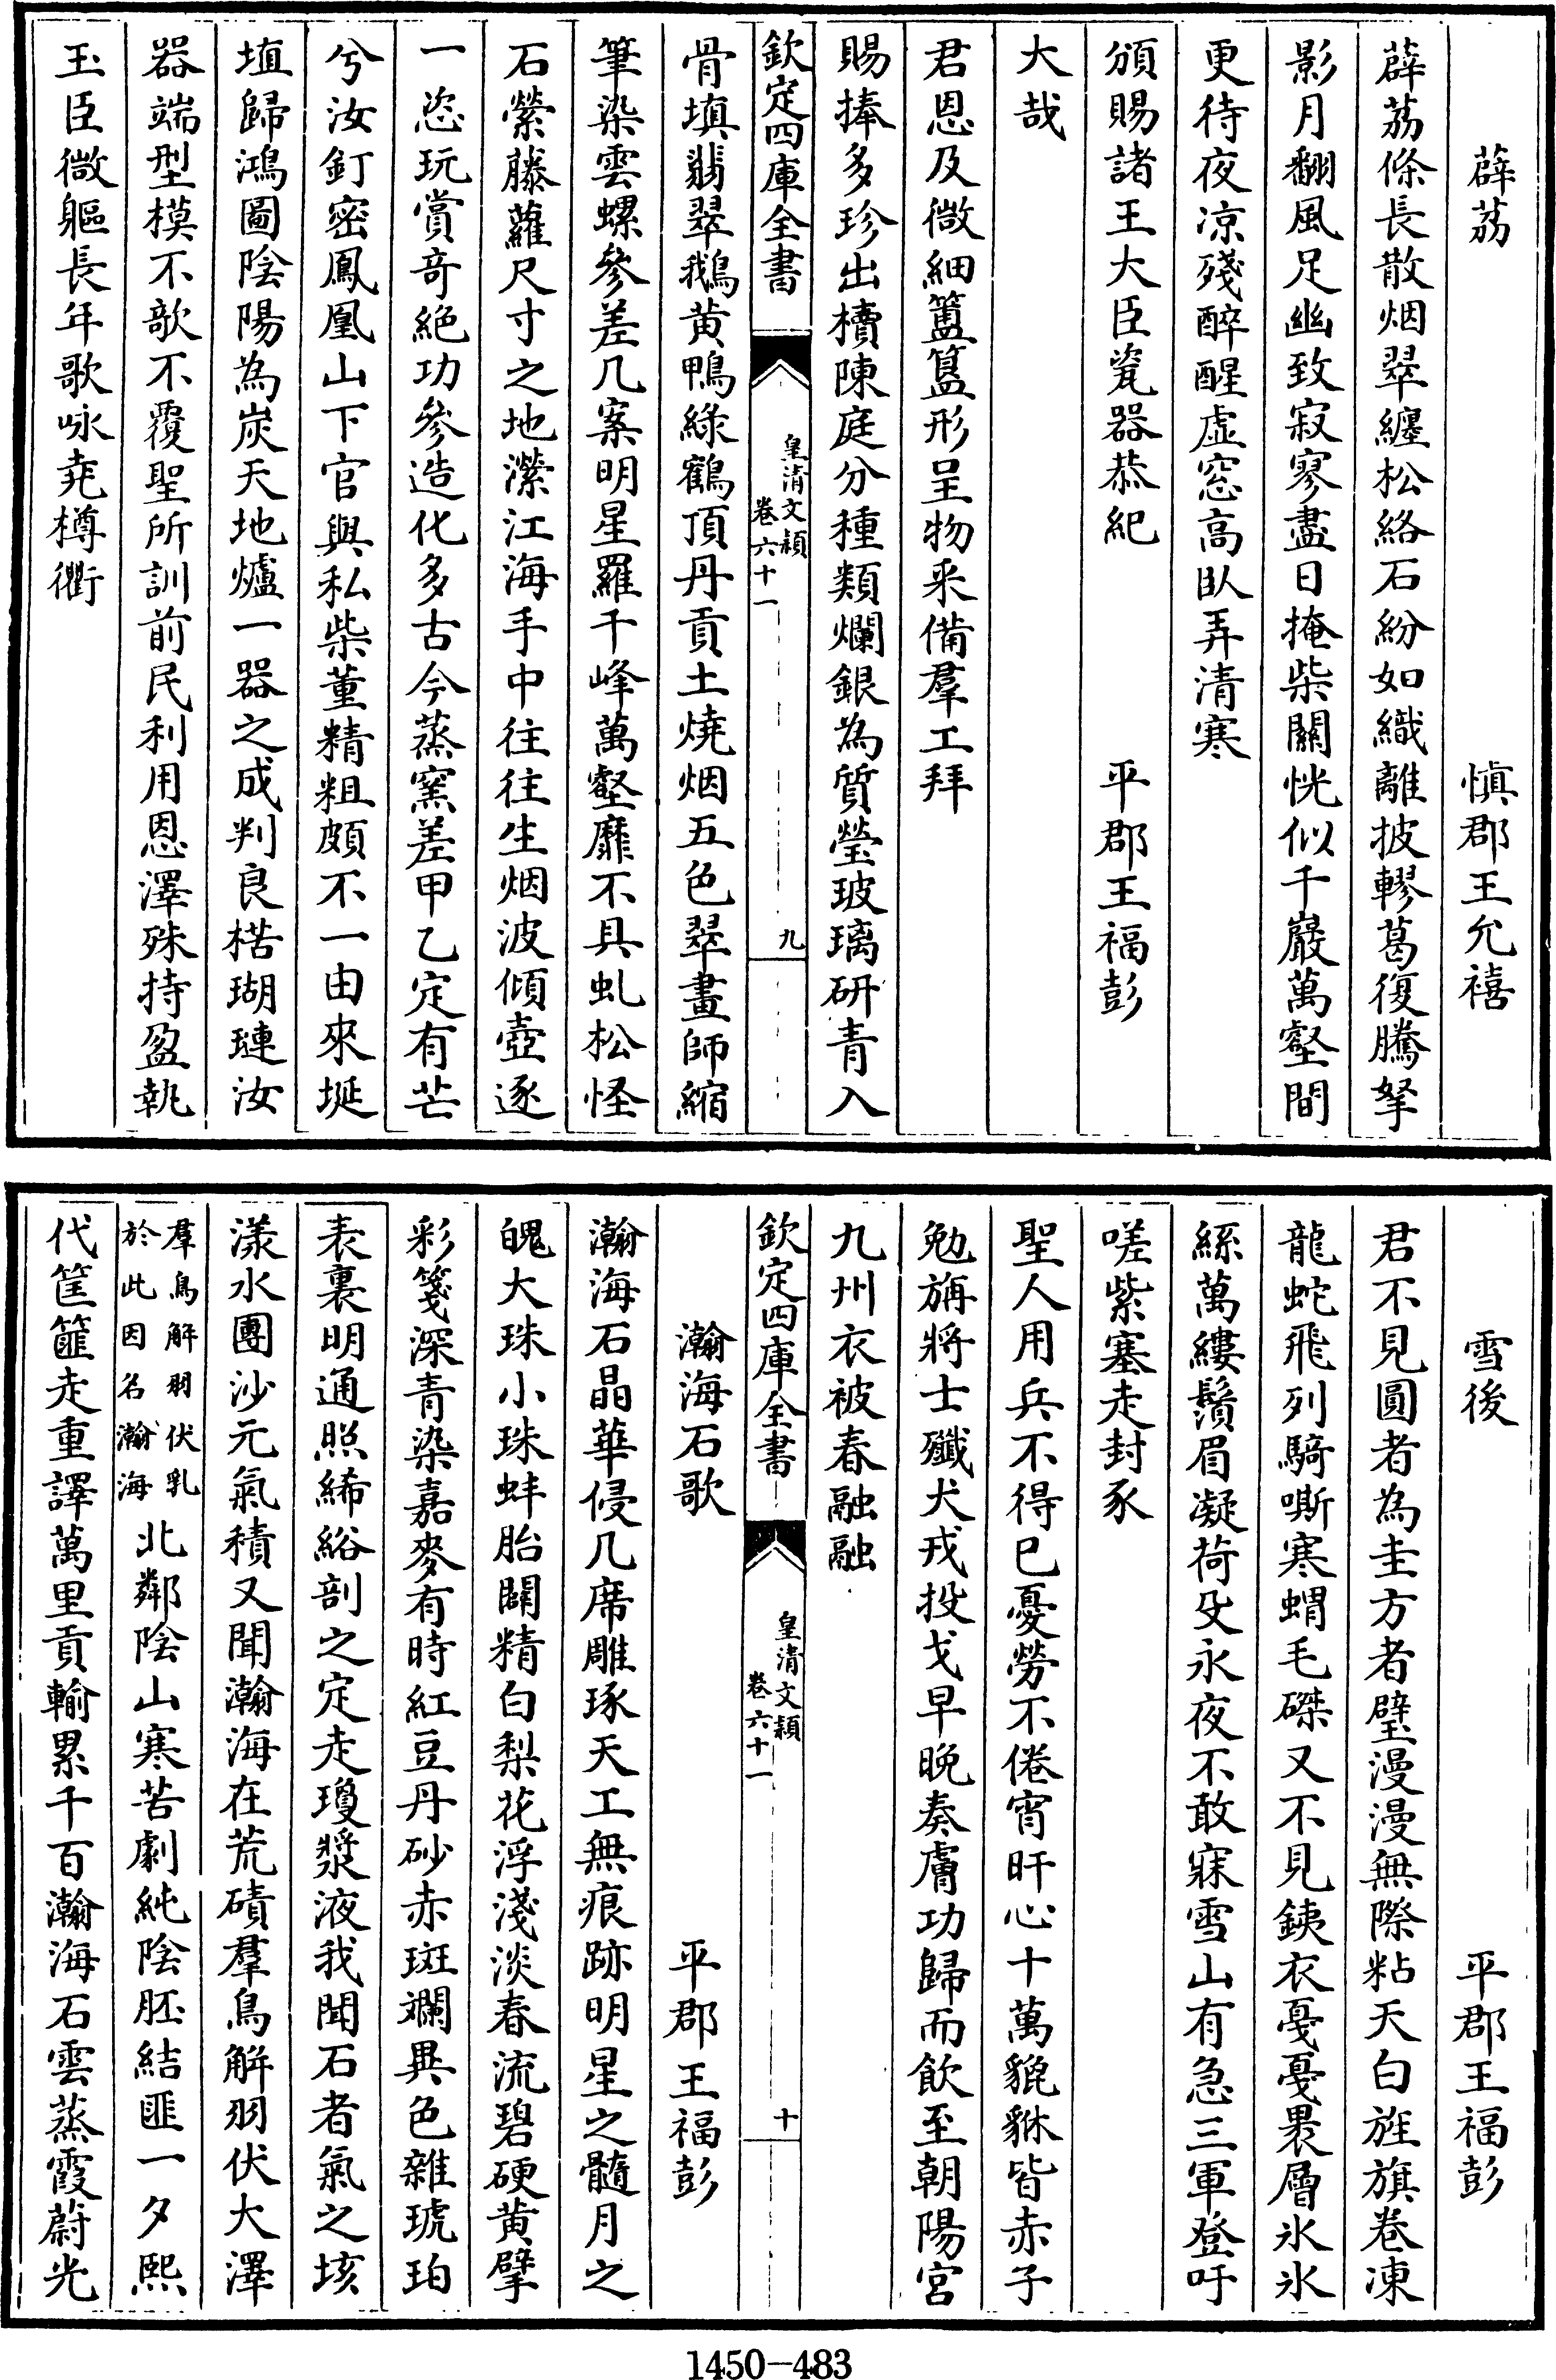 薜荔　慎郡王允禧
薜荔條長散烟翠纏松絡石紛如織離披轇葛復騰拏
影月翻風足幽致寂寥盡日掩柴關恍似千巖萬壑間
更待夜凉殘醉醒虛窓高臥弄清寒
頒賜諸王大臣瓷器恭紀　平郡王福彭
大哉
君恩及微細簠簋形呈物采備羣工拜
賜捧多珍出櫝陳庭分種類爛銀為質瑩玻璃研青入
欽定四庫全書　皇清文穎卷六十一　九
骨填翡翠鵝黄鴨綠鶴頂丹貢土燒烟五色翠畫師縮
筆染雲螺參差几案明星羅千峰萬壑靡不具虬松怪
石縈藤蘿尺寸之地瀠江海手中往往生烟波傾壺逐
一恣玩賞竒絶功參造化多古今蒸窯差甲乙定有芒
兮汝釘密鳳凰山下官與私柴董精粗頗不一由來埏
埴歸鴻圖陰陽為炭天地爐一器之成判良楛瑚璉汝
器端型模不歆不覆聖所訓前民利用恩澤殊持盈執
玉臣微軀長年歌咏堯樽衢
雪後　平郡王福彭
君不見圓者為圭方者璧漫漫無際粘天白旌旗卷凍
龍蛇飛列騎嘶寒蝟毛磔又不見銕衣戞戞褁層氷氷
絲萬縷鬚眉凝荷殳永夜不敢寐雪山有急三軍登吁
嗟紫塞走封豕
聖人用兵不得已憂勞不倦宵旰心十萬貔貅皆赤子
勉旃將士殲犬戎投戈早晚奏膚功歸而飲至朝陽宮
九州衣被春融融
欽定四庫全書　皇清文穎卷六十一　十
瀚海石歌　平郡王福彭
瀚海石晶華侵几席雕琢天工無痕跡明星之髓月之
魄大珠小珠蚌胎闢精白梨花浮淺淡春流碧硬黄擘
彩箋深青染嘉麥有時紅豆丹砂赤斑斕異色雜琥珀
表裏明通照絺綌剖之定走瓊漿液我聞石者氣之垓
漾水團沙元氣積又聞瀚海在荒磧羣鳥解羽伏大澤
羣鳥解羽伏乳於此因名瀚海北鄰陰山寒苦劇純陰胚結匪一夕熙
代筐篚走重譯萬里貢輸累千百瀚海石雲蒸霞蔚光
1450-483